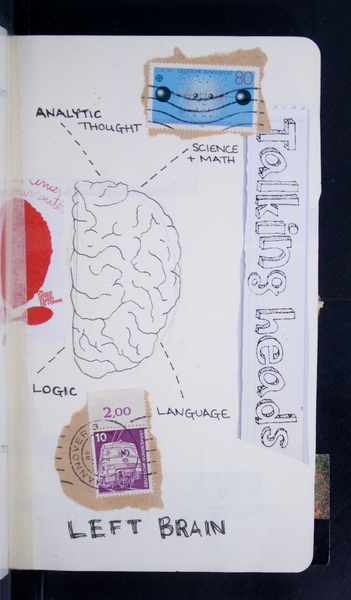 80
ANALYTIC
THOUGHT
SCIENCE
+ MATH
Talking heads
LOGIC
LANGUAGE
2,00
10
HANNOVER
LEFT BRAIN